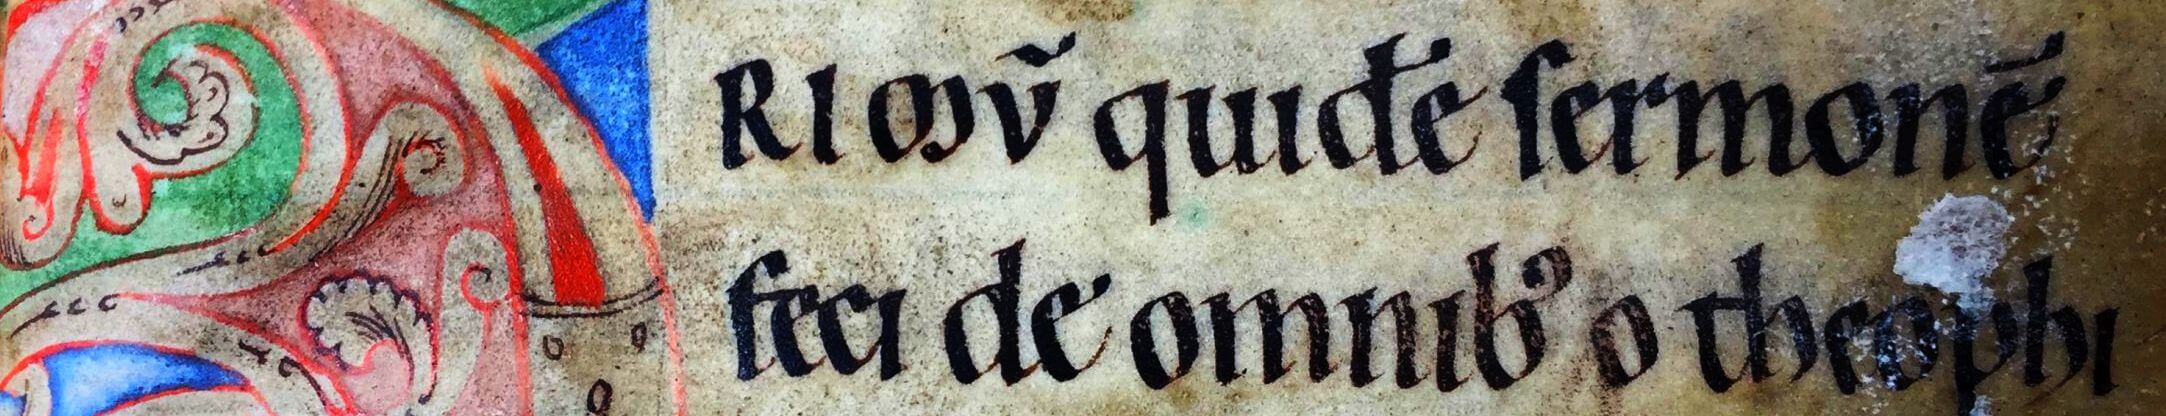 RIMṼ quidē ſermonē
feci de omnibꝰ o theophi